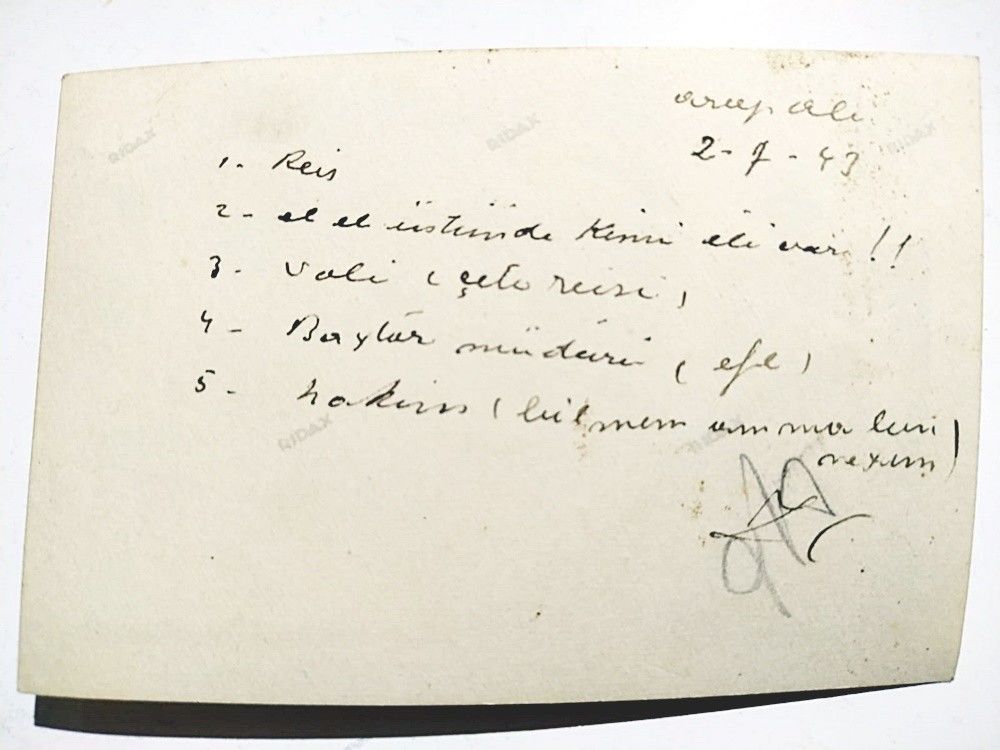 arap ali
2-7-43
1- Reis
2- el el üstünde kimi eli var !!
3- Vali ( çete reisi )
4- Baytar müdürü ( efe )
5- hakim ( bilmem amma ben
neyim )